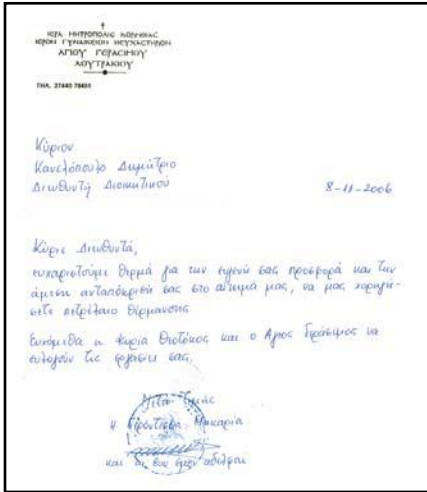 ΙΕΡΑ ΜΗΤΡΟΠΟΛΙΣ ΚΟΡΙΝΘΙΑΣ
ΙΕΡΟΝ ΓΥΝΑΙΚΕΙΟΝ ΗΣΥΧΑΣΤΗΡΙΟΝ
ΑΓΙΟΥ ΓΕΡΑΣΙΜΟΥ
ΛΟΥΤΡΑΚΙΟΥ
ΤΗΛ. 27440
Κύριον
Κανελόπουλο Δημήτριο
Διευθυντή Διοικητικού
8-11-2006
Κύριε Διευθυντά,
ευχαριστούμε θερμά για την ευγενή σας προσφορά και την
άμεση ανταπόκρισή σας στο αίτημά μας, να μας χορηγή-
σετε πετρέλαιο θέρμανσης
Ευχόμεθα η Κυρία Θεοτόκος και ο Άγιος Γεράσιμος να
ευλογούν τις εργασίες σας.
Μετά Τιμής
Η Γερόντισσα Μακαρία
και αι συν εμοί αδελφαί